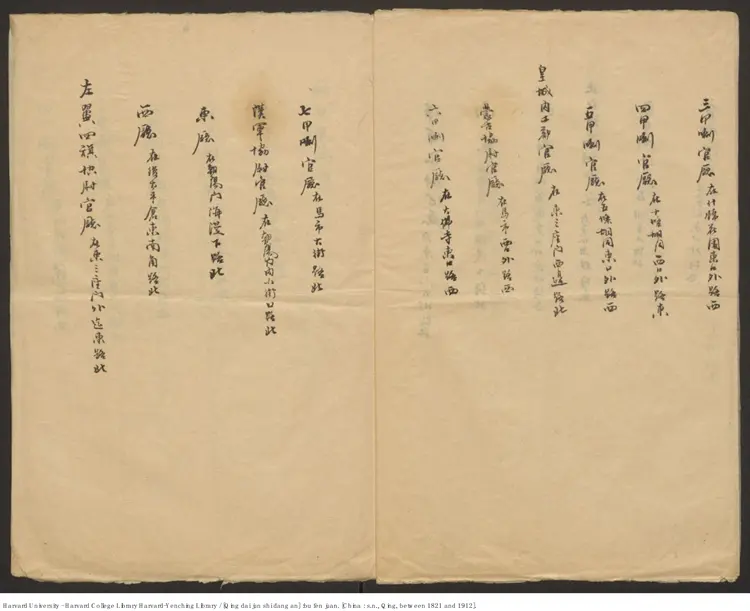 三甲喇官厅在什锦花園東口外路西
四甲喇官厅在十條胡同西口外路東
五甲喇官厅在五條胡同東口外路西
皇城内工部官厅在東三座门西邊路北
蒙古協尉官厅在馬市西口外路西
六甲喇官厅在大佛寺東口路西
七甲喇官厅在馬市大街路北
漢軍協尉官厅在朝陽门内小街口路北
東廳在朝陽门海漫下路北
西廳在倉東南角路北
左翼四旗協尉官厅在東三座门外迤東路北
Harvard University - Harvard College Library Harvard-Yenching Library / [Qing dai jun shi dang an] :bu fen juan. [China : s.n., Qing, between 1821 and 1912].